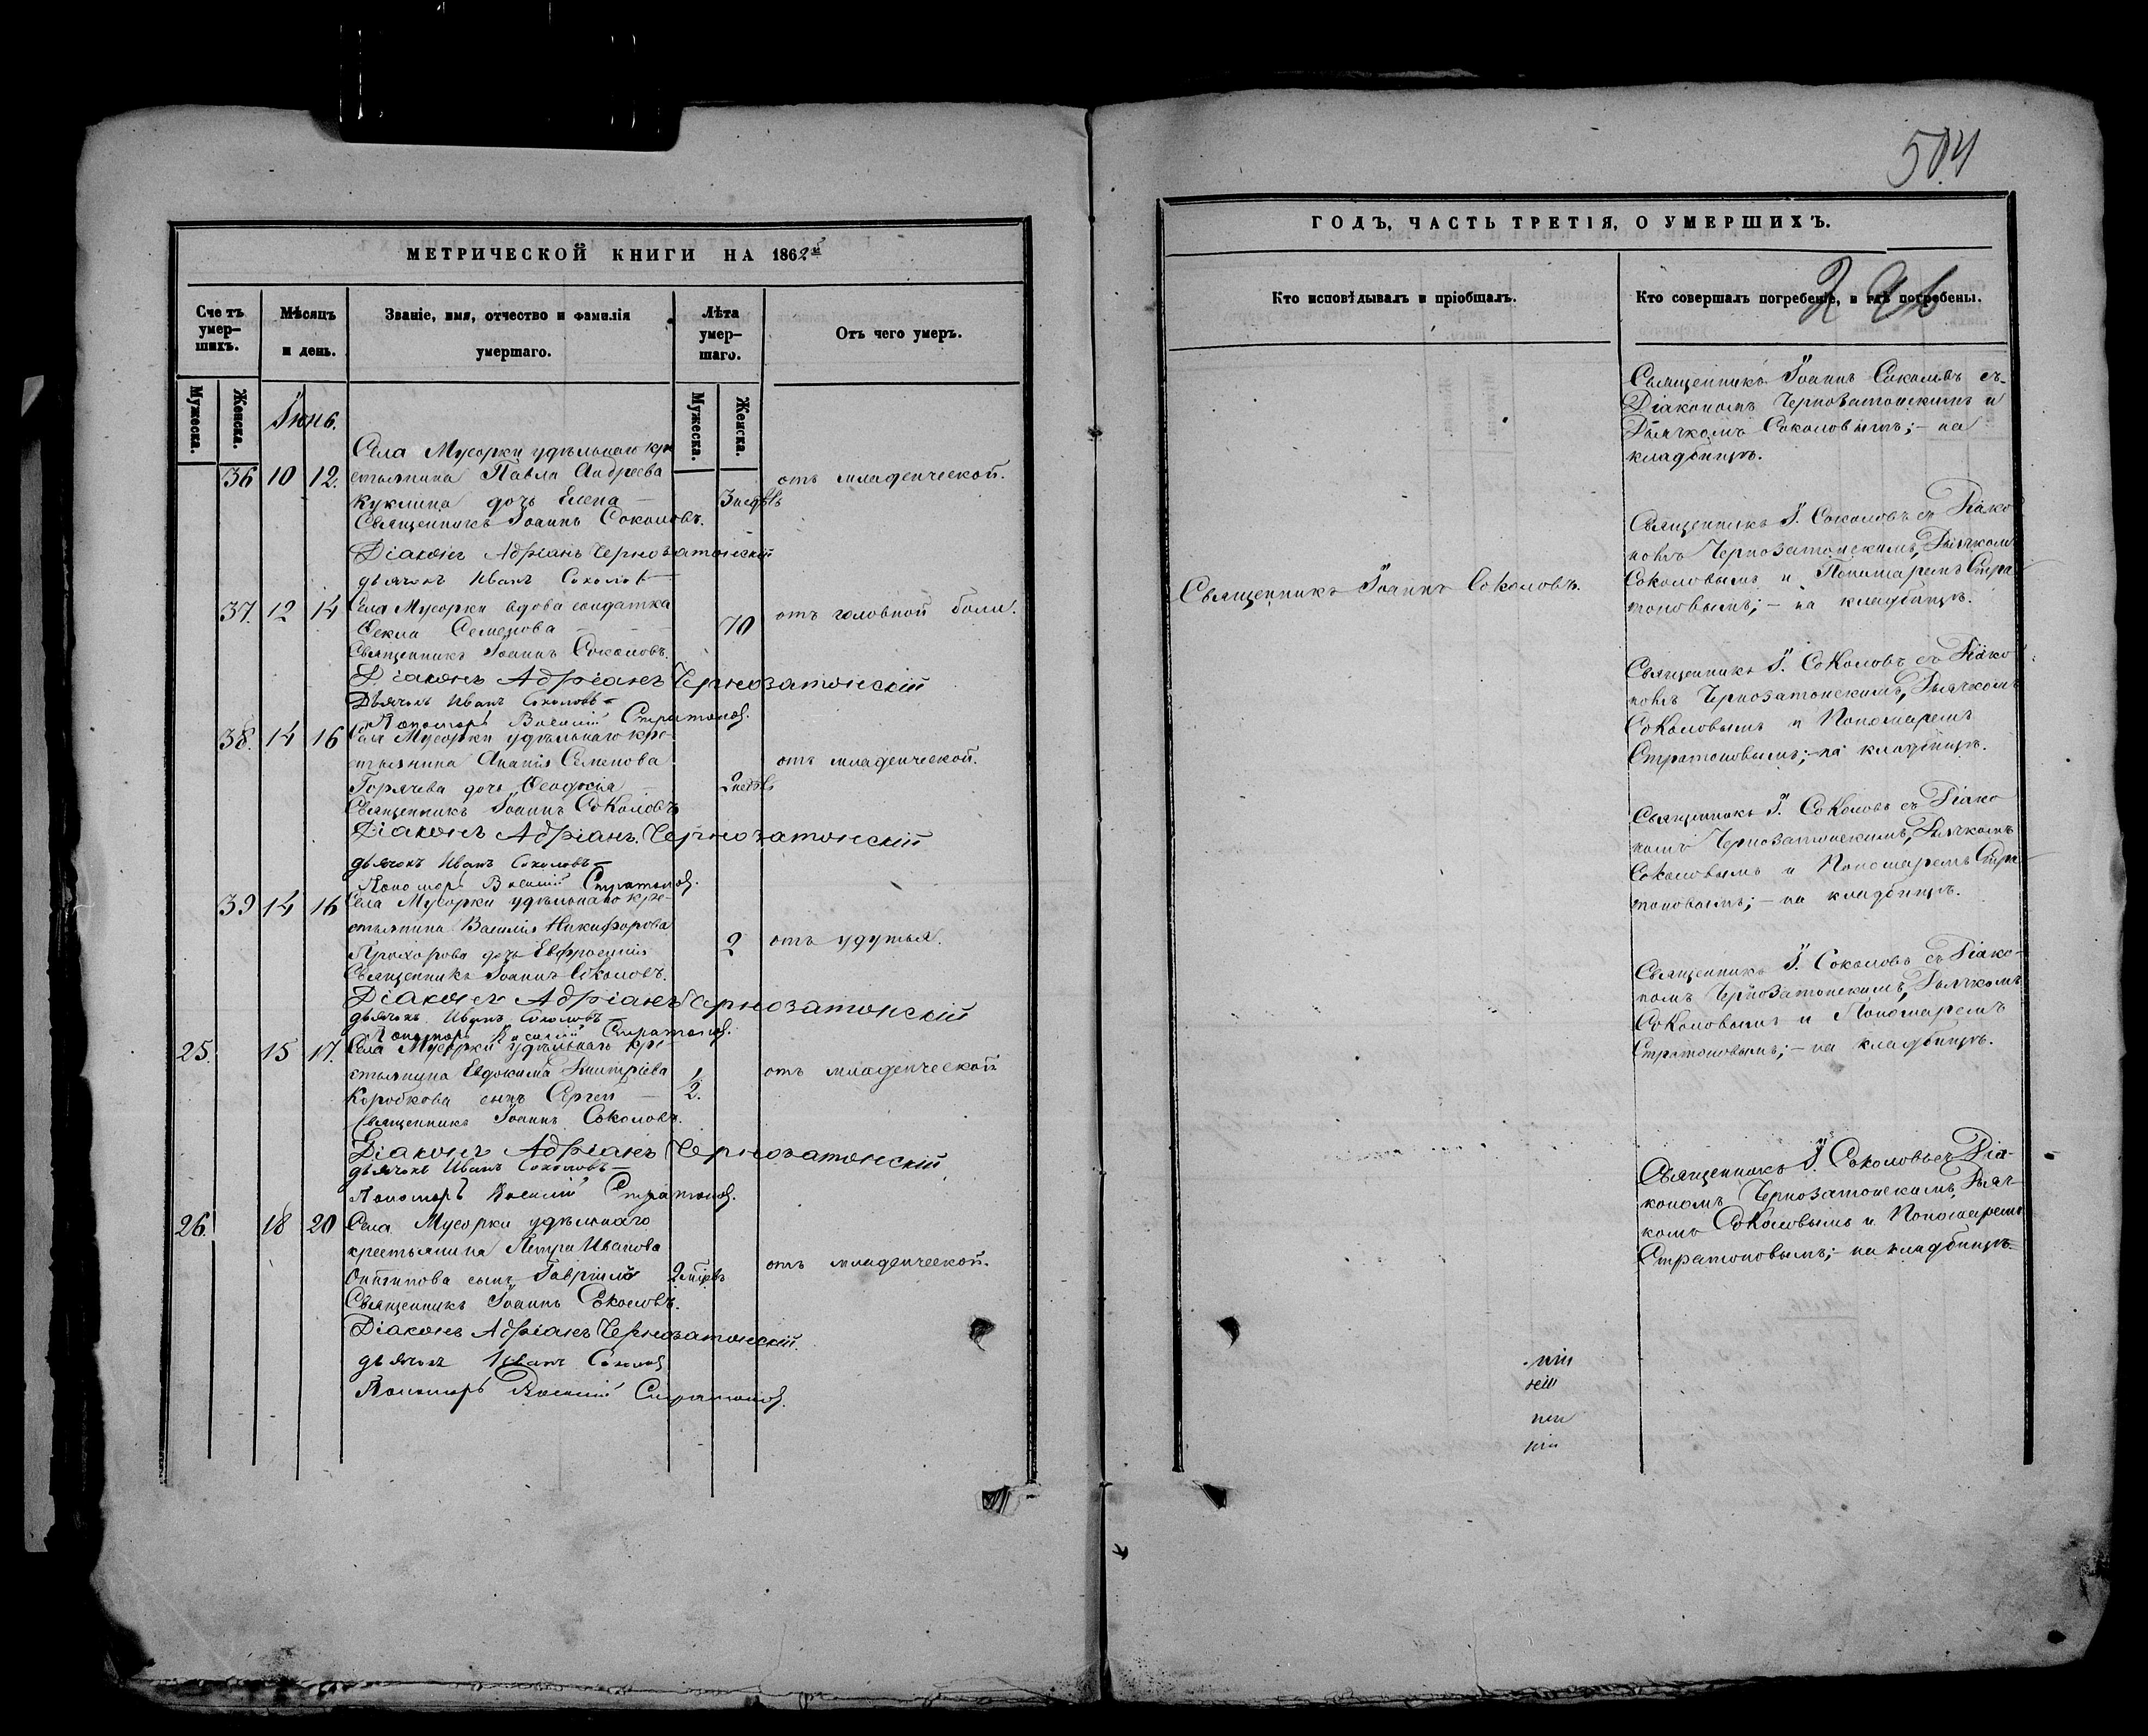 МЕТРИЧЕСКОЙ КНИГИ НА 1862й
Сче тъ умер-шихъ.
Мѣсяцъ и день.
Званіе, имя, отчество и фамилія умершаго.
Лѣта умер-шаго.
Отъ чего умеръ.
Мужеска.
Женска.
Мужеска.
Женска.
Іюнь.
Села Мусорки удѣльнаго кре
36 10 12. стьянина Павла Андреева отъ младенческой.
Куклина дочь Елена — 3 недѣль
Священникъ Іоаннъ Соколовъ.
Діаконъ Адріанъ Чернозатонскій
дьячекъ Иванъ Соколов
37. 12 14 Села Мусорки вдова солдатка отъ головной боли.
Ѳекла Семенова 70
Священникъ Іоаннъ Соколовъ.
Діаконъ Адріанъ Чернозатонскій
Дьячекъ Иванъ Соколовъ
Пономарь Василій Стратонов.
38. 14 16 Села Мусорки удѣльнаго кре-
стьянина Ананія Семенова отъ младенческой.
Горячева дочь Ѳеодосія 2 недѣль
Священникъ Іоаннъ Соколовъ
Діаконъ Адріанъ Чернозатонскій
дьячекъ Иванъ Соколовъ
Пономарь Василій Стратонов.
39 14 16 Села Мусорки удѣльнаго кре-
стьянина Василія Никифорова
Прохорова дочь Евфросинія 2 отъ удушья.
Священникъ Іоаннъ Соколовъ.
Діаконъ Адріанъ Чернозатонскій
дьячекъ Иванъ Соколовъ
Пономарь Василій Стратонов.
25. 15 17. Села Мусорки удѣльнаго кре-
стьянина Евдокима Дмитріева 1/2. отъ младенческой
Коробкова сынъ Сергей
Священникъ Іоаннъ Соколовъ.
Діаконъ Адріанъ Чернозатонскій
дьячекъ Иванъ Соколовъ
Пономарь Василій Стратонов.
26. 18 20 Села Мусорки удѣльнаго
крестьянина Петра Иванова отъ младенческой.
сынъ Гавріилъ
Священникъ Іоаннъ Соколовъ.
Діаконъ Адріанъ Чернозатонскій.
дьячекъ Иванъ Соколов
Пономарь Василій Стратонов.
504
ГОДЪ, ЧАСТЬ ТРЕТІЯ, О УМЕРШИХЪ.
Кто исповѣдывалъ и пріобщалъ.
Кто совершалъ погребеніе, и гдѣ погребены.
Священникъ Іоаннъ Соколовъ съ
Діакономъ Чернозатонскимъ и
Дьячкомъ Соколовымъ; – на
кладбищѣ.
Священникъ І. Соколовъ съ Діако
номъ Чернозатонскимъ, Дьячкомъ
Священникъ Іоаннъ Соколовъ.
Соколовымъ и Пономаремъ Стра
тоновымъ; – на кладбищѣ.
Священникъ І. Соколовъ съ Діако
номъ Чернозатонскимъ, Дьячкомъ
Соколовымъ и Пономаремъ
Стратоновымъ; – на кладбищѣ.
Священникъ І. Соколовъ съ Діако
номъ Чернозатонскимъ, Дьячкомъ
Соколовымъ и Пономаремъ Стра
тоновымъ; – на кладбищѣ.
Священникъ І. Соколовъ съ Діако-
номъ Чернозатонскимъ, Дьячкомъ
Соколовымъ и Пономаремъ
Стратоновымъ; – на кладбищѣ.
Священникъ І. Соколовъ съ Діа-
кономъ Чернозатонскимъ, Дьяч-
комъ Соколовымъ и Пономаремъ
Стратоновымъ; – на кладбищѣ